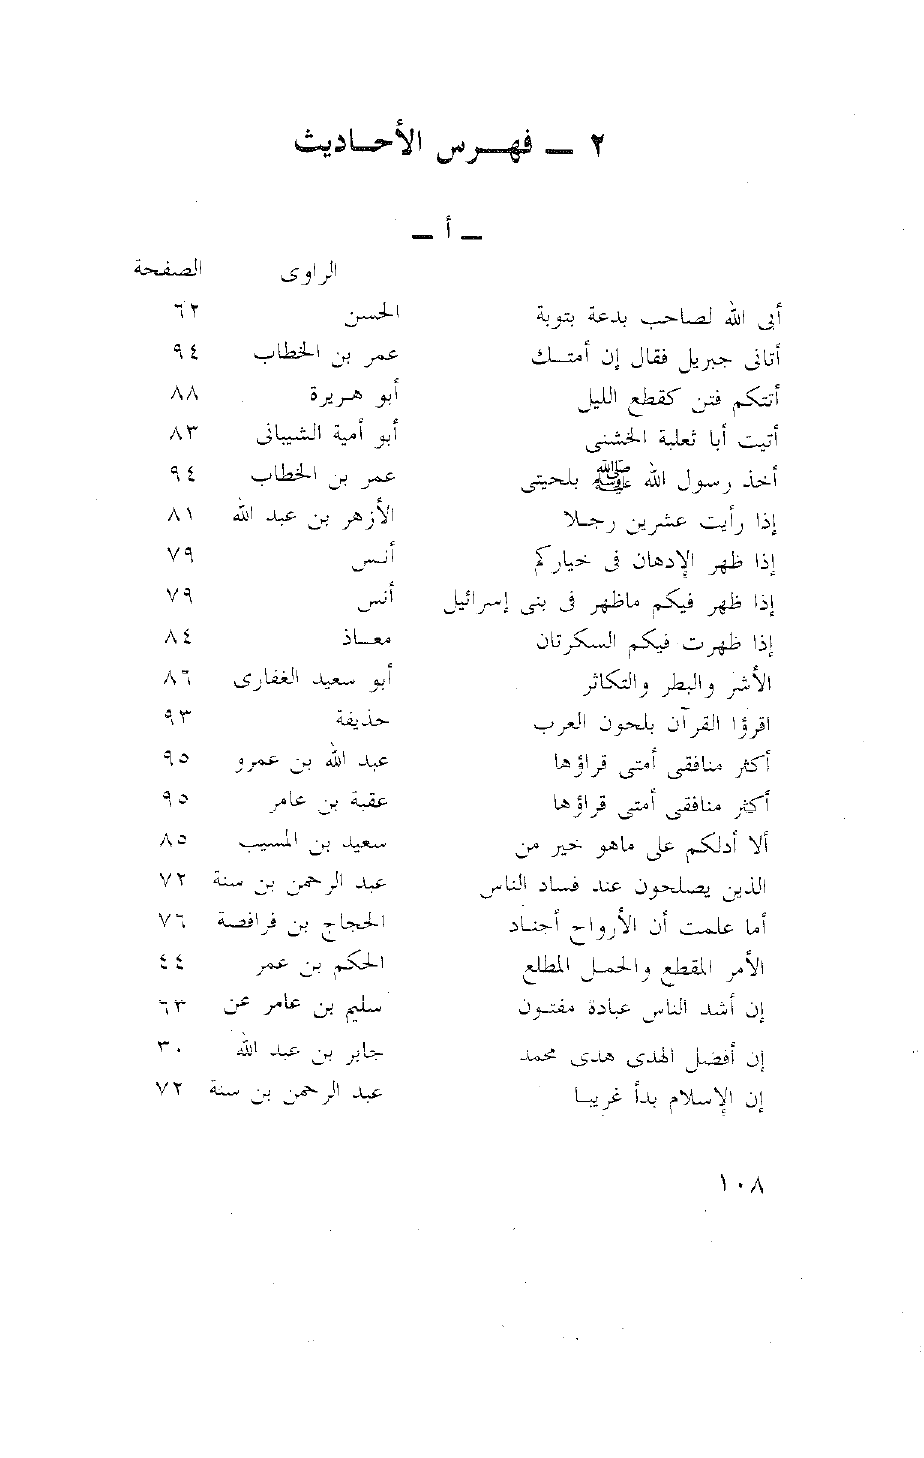 ٢ ـ فهرس الأحاديث
ـ أ ـ
الراوى الصفحة
أبى الله لصاحب بدعة بتوبة الحسن ٦٢
أتانى جبريل فقال إن أمتك عمر بن الخطاب ٩٤
أتتكم فتن كقطع الليل أبو هريرة ٨٨
أتيت أبا ثعلبة الخشنى أبو أمية الشيبانى ٨٣
أخذ رسول الله ﷺ بلحيتى عمر بن الخطاب ٩٤
إذا رأيت عشرين رجلا الأزهر بن عبد الله ٨١
إذا ظهر الإدهان فى خياركم أنس ٧٩
إذا ظهر فيكم ماظهر فى بنى إسرائيل أنس ٧٩
إذا ظهرت فيكم السكرتان معاذ ٨٤
الأشر والبطر والتكاثر أبو سعيد الغفارى ٨٦
اقرؤا القرآن بلحون العرب حذيفة ٩٣
أكثر منافقى أمتى قراؤها عبد الله بن عمرو ٩٥
أكثر منافقى أمتى قراؤها عقبة بن عامر ٩٥
ألا أدلكم على ماهو خير من سعيد بن المسيب ٨٥
الذين يصلحون عند فساد الناس عبد الرحمن بن سنة ٧٢
أما علمت أن الأرواح أجناد الحجاج بن فرافصة ٧٦
الأمر المقطع والحمل المطلع الحكم بن عمر ٤٤
إن أشد الناس عبادة مفتون سليم بن عامر عن ٦٣
إن أفضل الهدى هدى محمد جابر بن عبد الله ٣٠
إن الإسلام بدأ غريبا عبد الرحمن بن سنة ٧٢
١٠٨